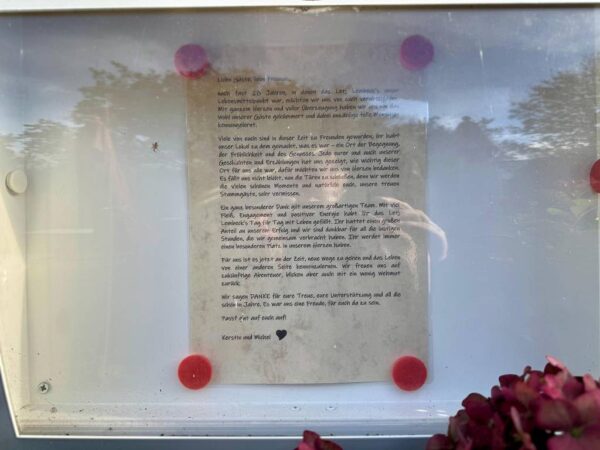 Liebe Gäste, liebe Freunde,
nach fast 20 Jahren, in denen das Lütt Lembeck's unser
Lebensmittelpunkt war, möchten wir uns von euch verabschieden.
Mit ganzem Herzen und voller Überzeugung haben wir uns um das
Wohl unserer Gäste gekümmert und dabei unzählige tolle Menschen
kennengelernt.
Viele von euch sind in dieser Zeit zu Freunden geworden, ihr habt
unser Lokal zu dem gemacht, was es war – ein Ort der Begegnung,
der Fröhlichkeit und des Genusses. Jede eurer und auch unserer
Geschichten und Erzählungen hat uns gezeigt, wie wichtig dieser
Ort für uns alle war, dafür möchten wir uns von Herzen bedanken.
Es fällt uns nicht leicht, nun die Türen zu schließen, denn wir werden
die vielen schönen Momente und natürlich euch, unsere treuen
Stammgäste, sehr vermissen.
Ein ganz besonderer Dank gilt unserem großartigen Team. Mit viel
Fleiß, Engagement und positiver Energie habt ihr das
Lembeck's Tag für Tag mit Leben gefüllt. Ihr hattet einen großen
Anteil an unserem Erfolg und wir sind dankbar für all die lustigen
Stunden, die wir gemeinsam verbracht haben. Ihr werdet immer
einen besonderen Platz in unserem Herzen haben.
Für uns ist es jetzt an der Zeit, neue Wege zu gehen und das Leben
von einer anderen Seite kennenzulernen. Wir freuen uns auf
zukünftige Abenteuer, blicken aber auch mit ein wenig Wehmut
zurück.
Wir sagen DANKE für eure Treue, eure Unterstützung und all die
schönen Jahre. Es war uns eine Freude, für euch da zu sein.
Passt gut auf euch auf!
Kerstin und Michel